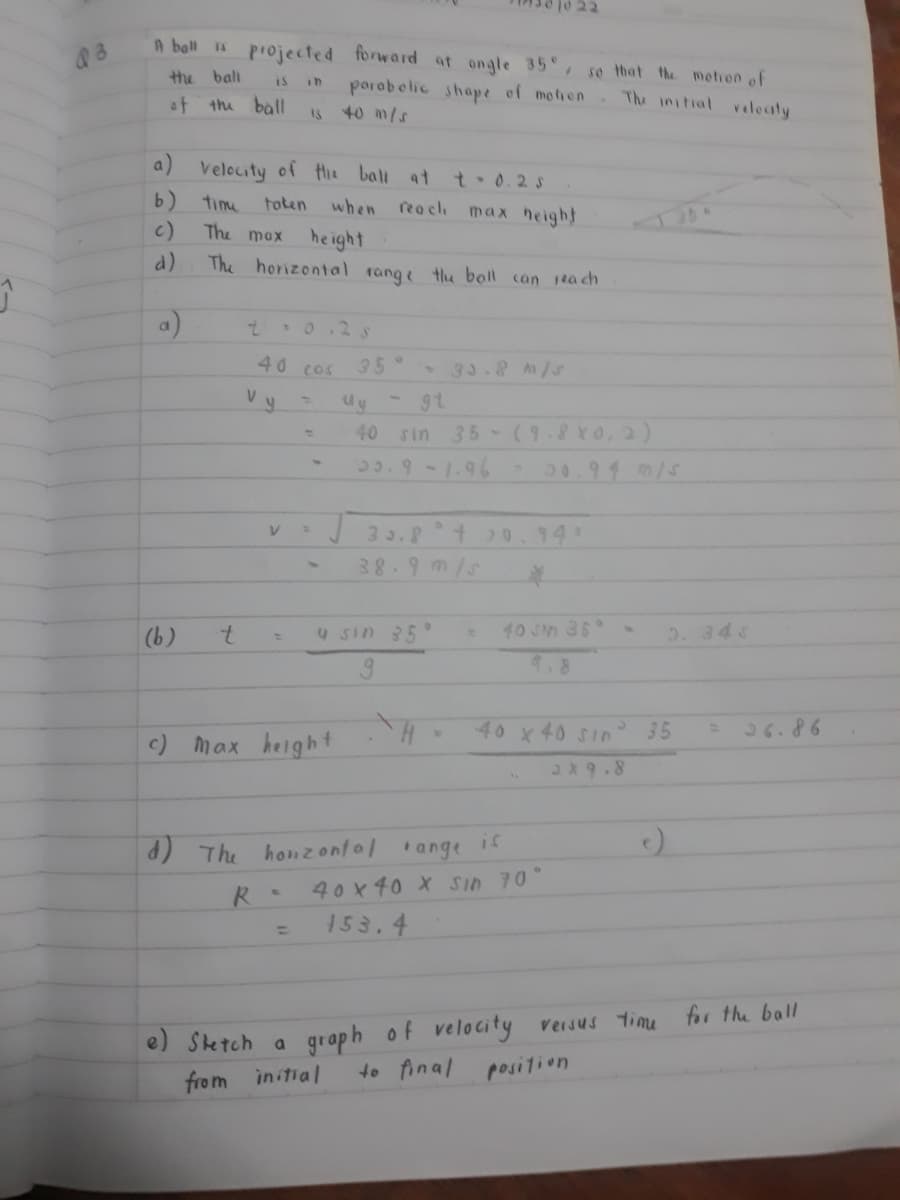 Q3 A ball is projected forward at angle 35°, so that the motion of
the ball is in parabolic shape of motion. The initial velocity
of the ball is 40 m/s
a) Velocity of the ball at t = 0.2 s
b) time taken when reach max height
c) The max height
d) The horizontal range the ball can reach
35°
a) t = 0.2 s
40 cos 35° = 32.8 m/s
Vy = uy - gt
= 40 sin 35 - (9.8 x 0.2)
= 22.9 - 1.96 = 20.94 m/s
v = √32.8² + 20.94²
= 38.9 m/s
(b) t = u sin 35° = 40 sin 35° = 2.34 s
g 9.8
c) Max height. H = 40 x 40 sin² 35 = 26.86
2 x 9.8
d) The horizontal range is e)
R = 40 x 40 x sin 70°
= 153.4
e) Sketch a graph of velocity versus time for the ball
from initial to final position